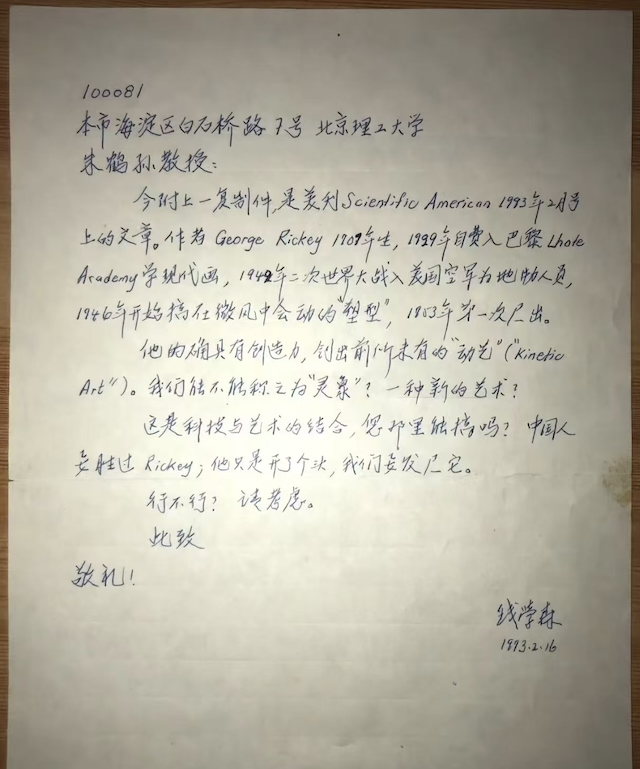 100081
本市海淀区白石桥路7号 北京理工大学
朱鹤孙教授:
今附上一复制件,是美刊Scientific American 1993年2月号
上的文章。作者 George Rickey 1907年生, 1929年自费入巴黎Lhote
Academy学现代画, 1942年二次世界大战入美国空军为地勤人员,
1946年开始搞在微风中会动的“塑型”, 1953年第一次展出。
他的确具有创造力, 创出前所未有的“动艺”(“Kinetic
Art”)。我们能不能称之为“灵象”? 一种新的艺术?
这是科技与艺术的结合, 您那里能搞吗? 中国人
要胜过 Rickey; 他只是开了个头, 我们要发展它。
行不行? 请考虑。
此致
敬礼!
钱学森
1993.2.16